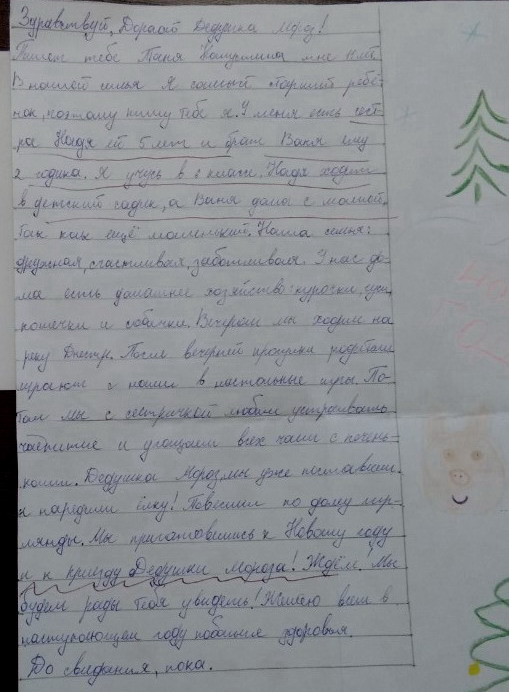 Здравствуй, Дорогой Дедушка Мороз!
Пишет тебе Таня мне лет
В нашей семье Я самый старший ребё-
нок, поэтому пишу тебе я. У меня есть сест-
ра Надя ей 5 лет и брат Ваня ему
2 годика. Я учусь в классе. Надя ходит
в детский садик, а Ваня дома с мамой,
так как ещё маленький. Наша семья:
дружная, счастливая, заботливая. У нас до-
ма есть домашнее хозяйство: курочки,
кошечки и собачки. Вечером мы ходим на
реку Днестр. После вечерней прогулки родители
играют с нами в настольные игры. По-
том мы с сестричкой любим устраивать
чаепитие и угощаем всех чаем с печень-
ками. Дедушка Мороз мы уже поставили
и нарядили ёлку! Повесили по дому гир-
лянды. Мы приготовились к Новому году
и к приезду Дедушки Мороза! Ждём. Мы
будем рады тебя увидеть! Желаю всем в
наступающем году побольше здоровья.
До свидания, пока.